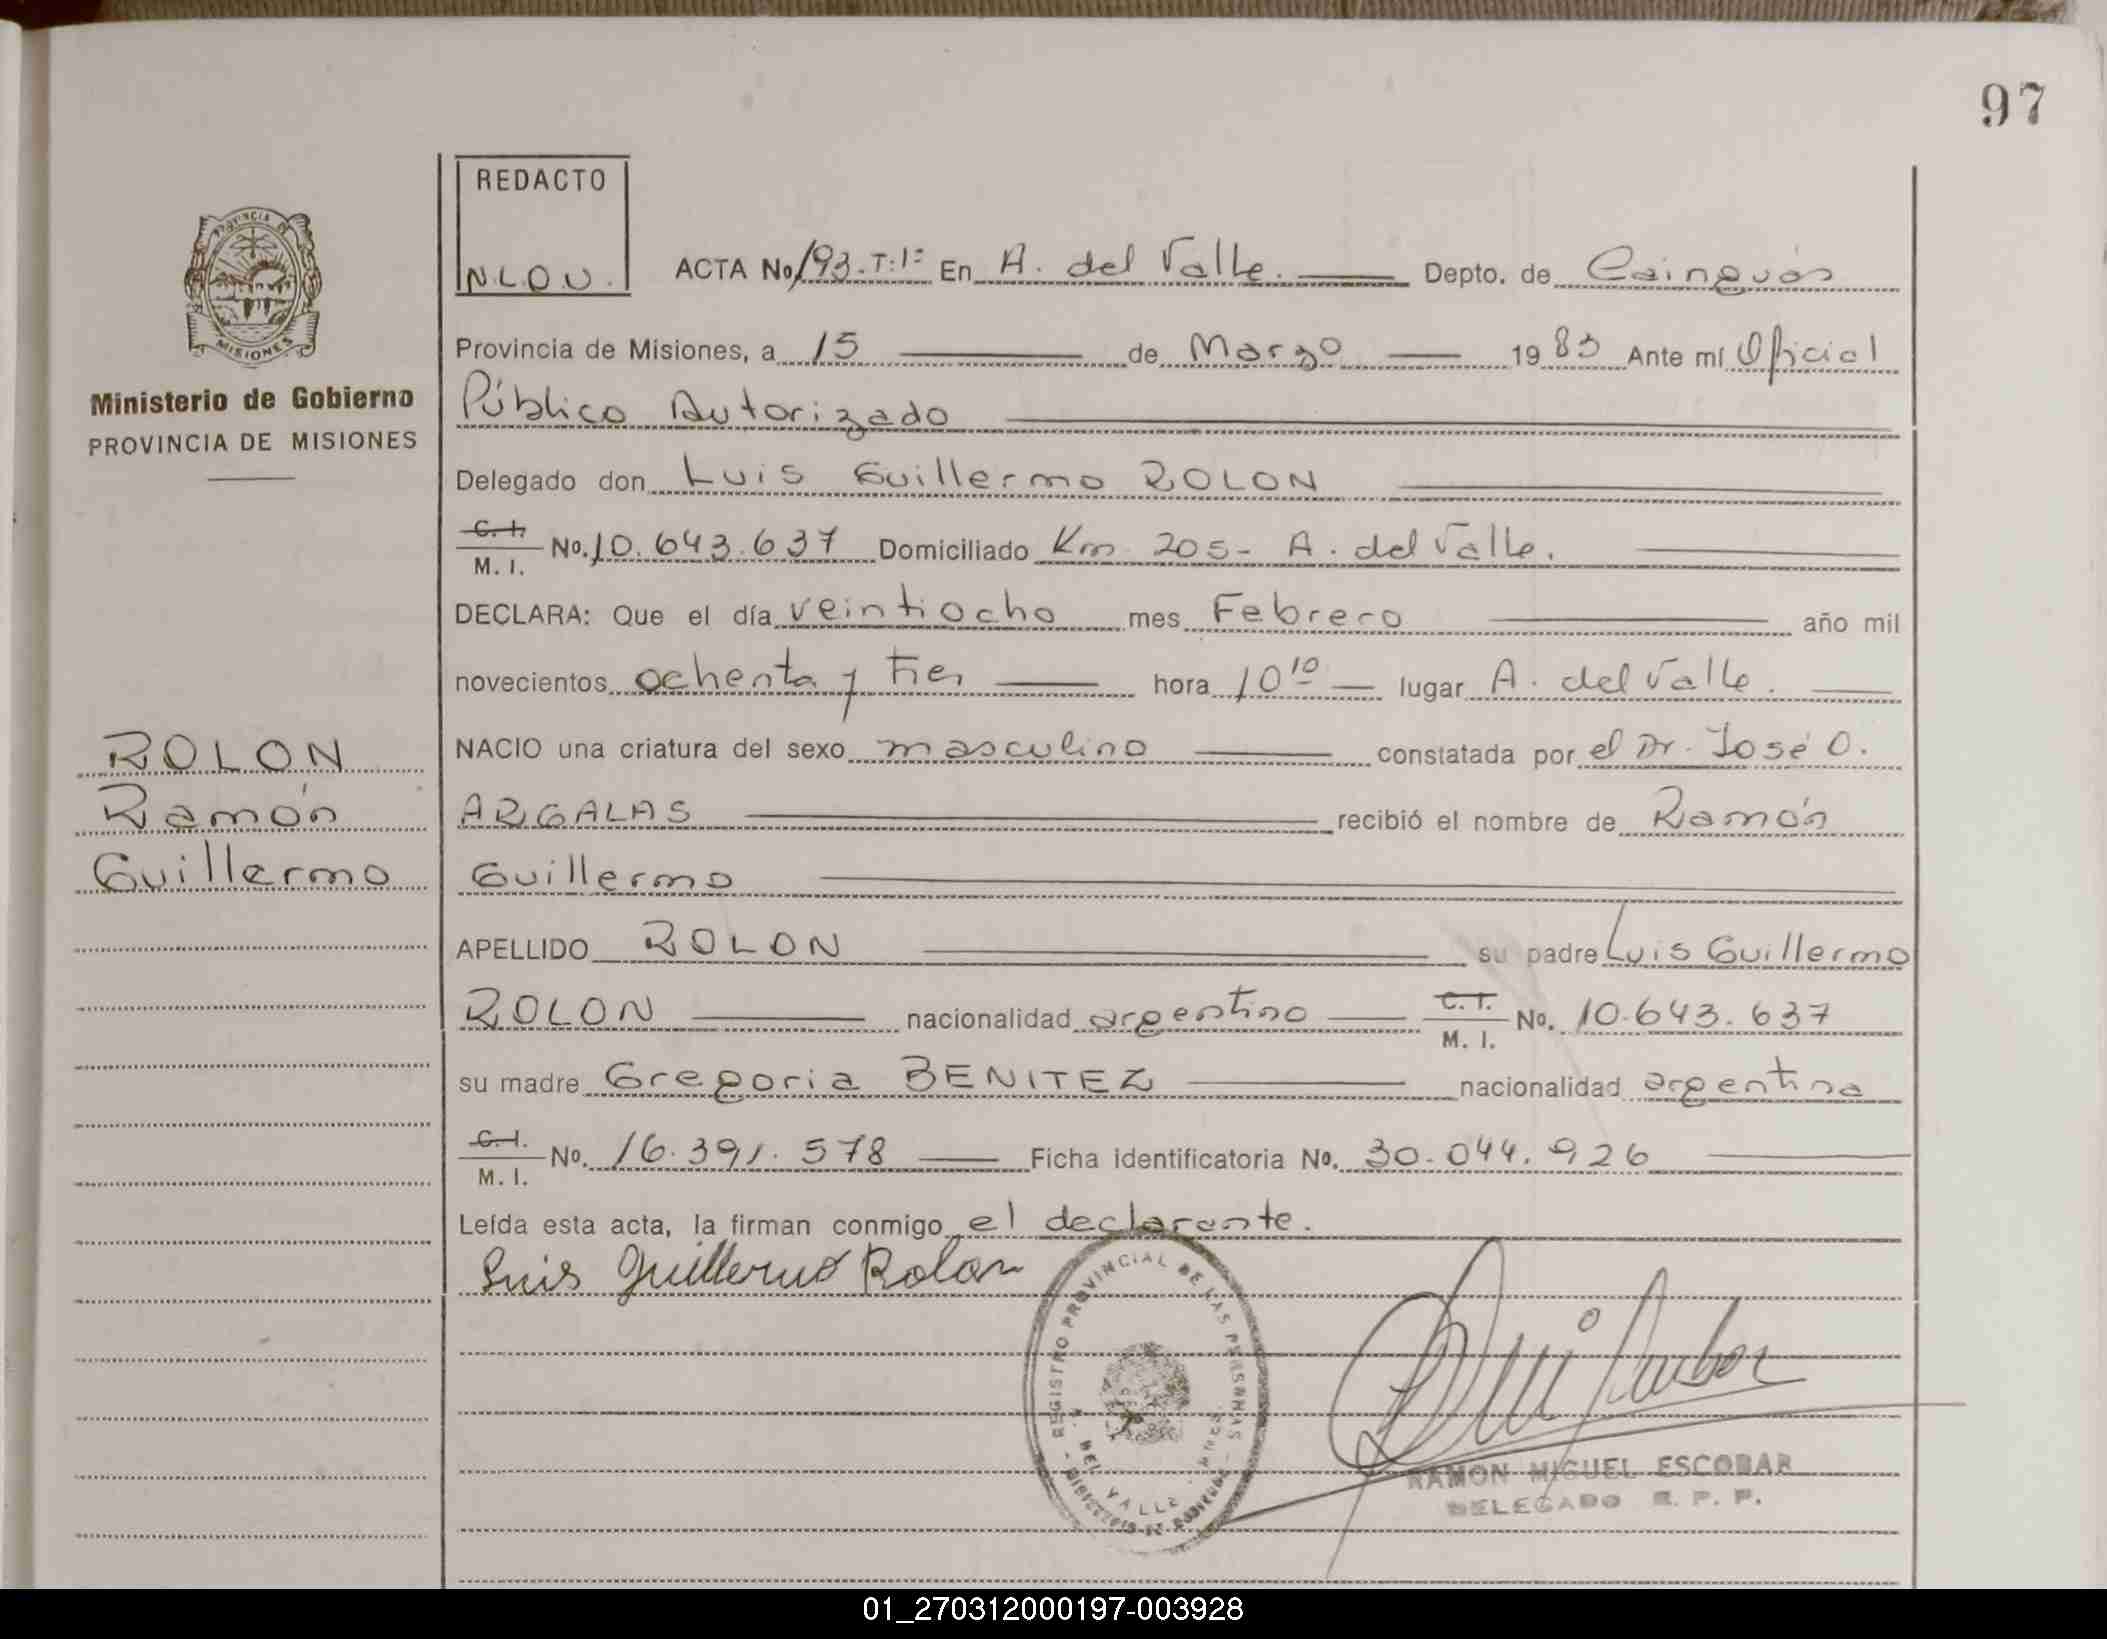 97
REDACTO
N.L.O.U.
PROVINCIA DE
MISIONES
Ministerio de Gobierno
PROVINCIA DE MISIONES
ACTA No 193-T:1º En A. del Valle. Depto. de Cainguás
Provincia de Misiones, a 15 de Marzo 1983 Ante mí Oficial
Público Autorizado
Delegado don Luis Guillermo ROLON
C. I. M. I. No. 10.643.637 Domiciliado Km 205- A. del Valle.
DECLARA: Que el día veintiocho mes Febrero año mil
novecientos ochenta y tres hora 10 10 lugar A. del Valle.
NACIO una criatura del sexo masculino constatada por el Dr. José O.
ARGALAS recibió el nombre de Ramón
Guillermo
ROLON
Ramón
Guillermo
APELLIDO ROLON su padre Luis Guillermo
ROLON nacionalidad argentino C. I. M. I. No. 10.643.637
su madre Gregoria BENITEZ nacionalidad argentina
C. I. M. I. No. 16.391.578 Ficha identificatoria No. 30.044.926
Leída esta acta, la firman conmigo el declarante.
Luis Guillermo Rolon
REGISTRO PROVINCIAL DE LAS PERSONAS
DEL VALLE
RAMON MIGUEL ESCOBAR
DELEGADO R. P. P.
01_270312000197-003928